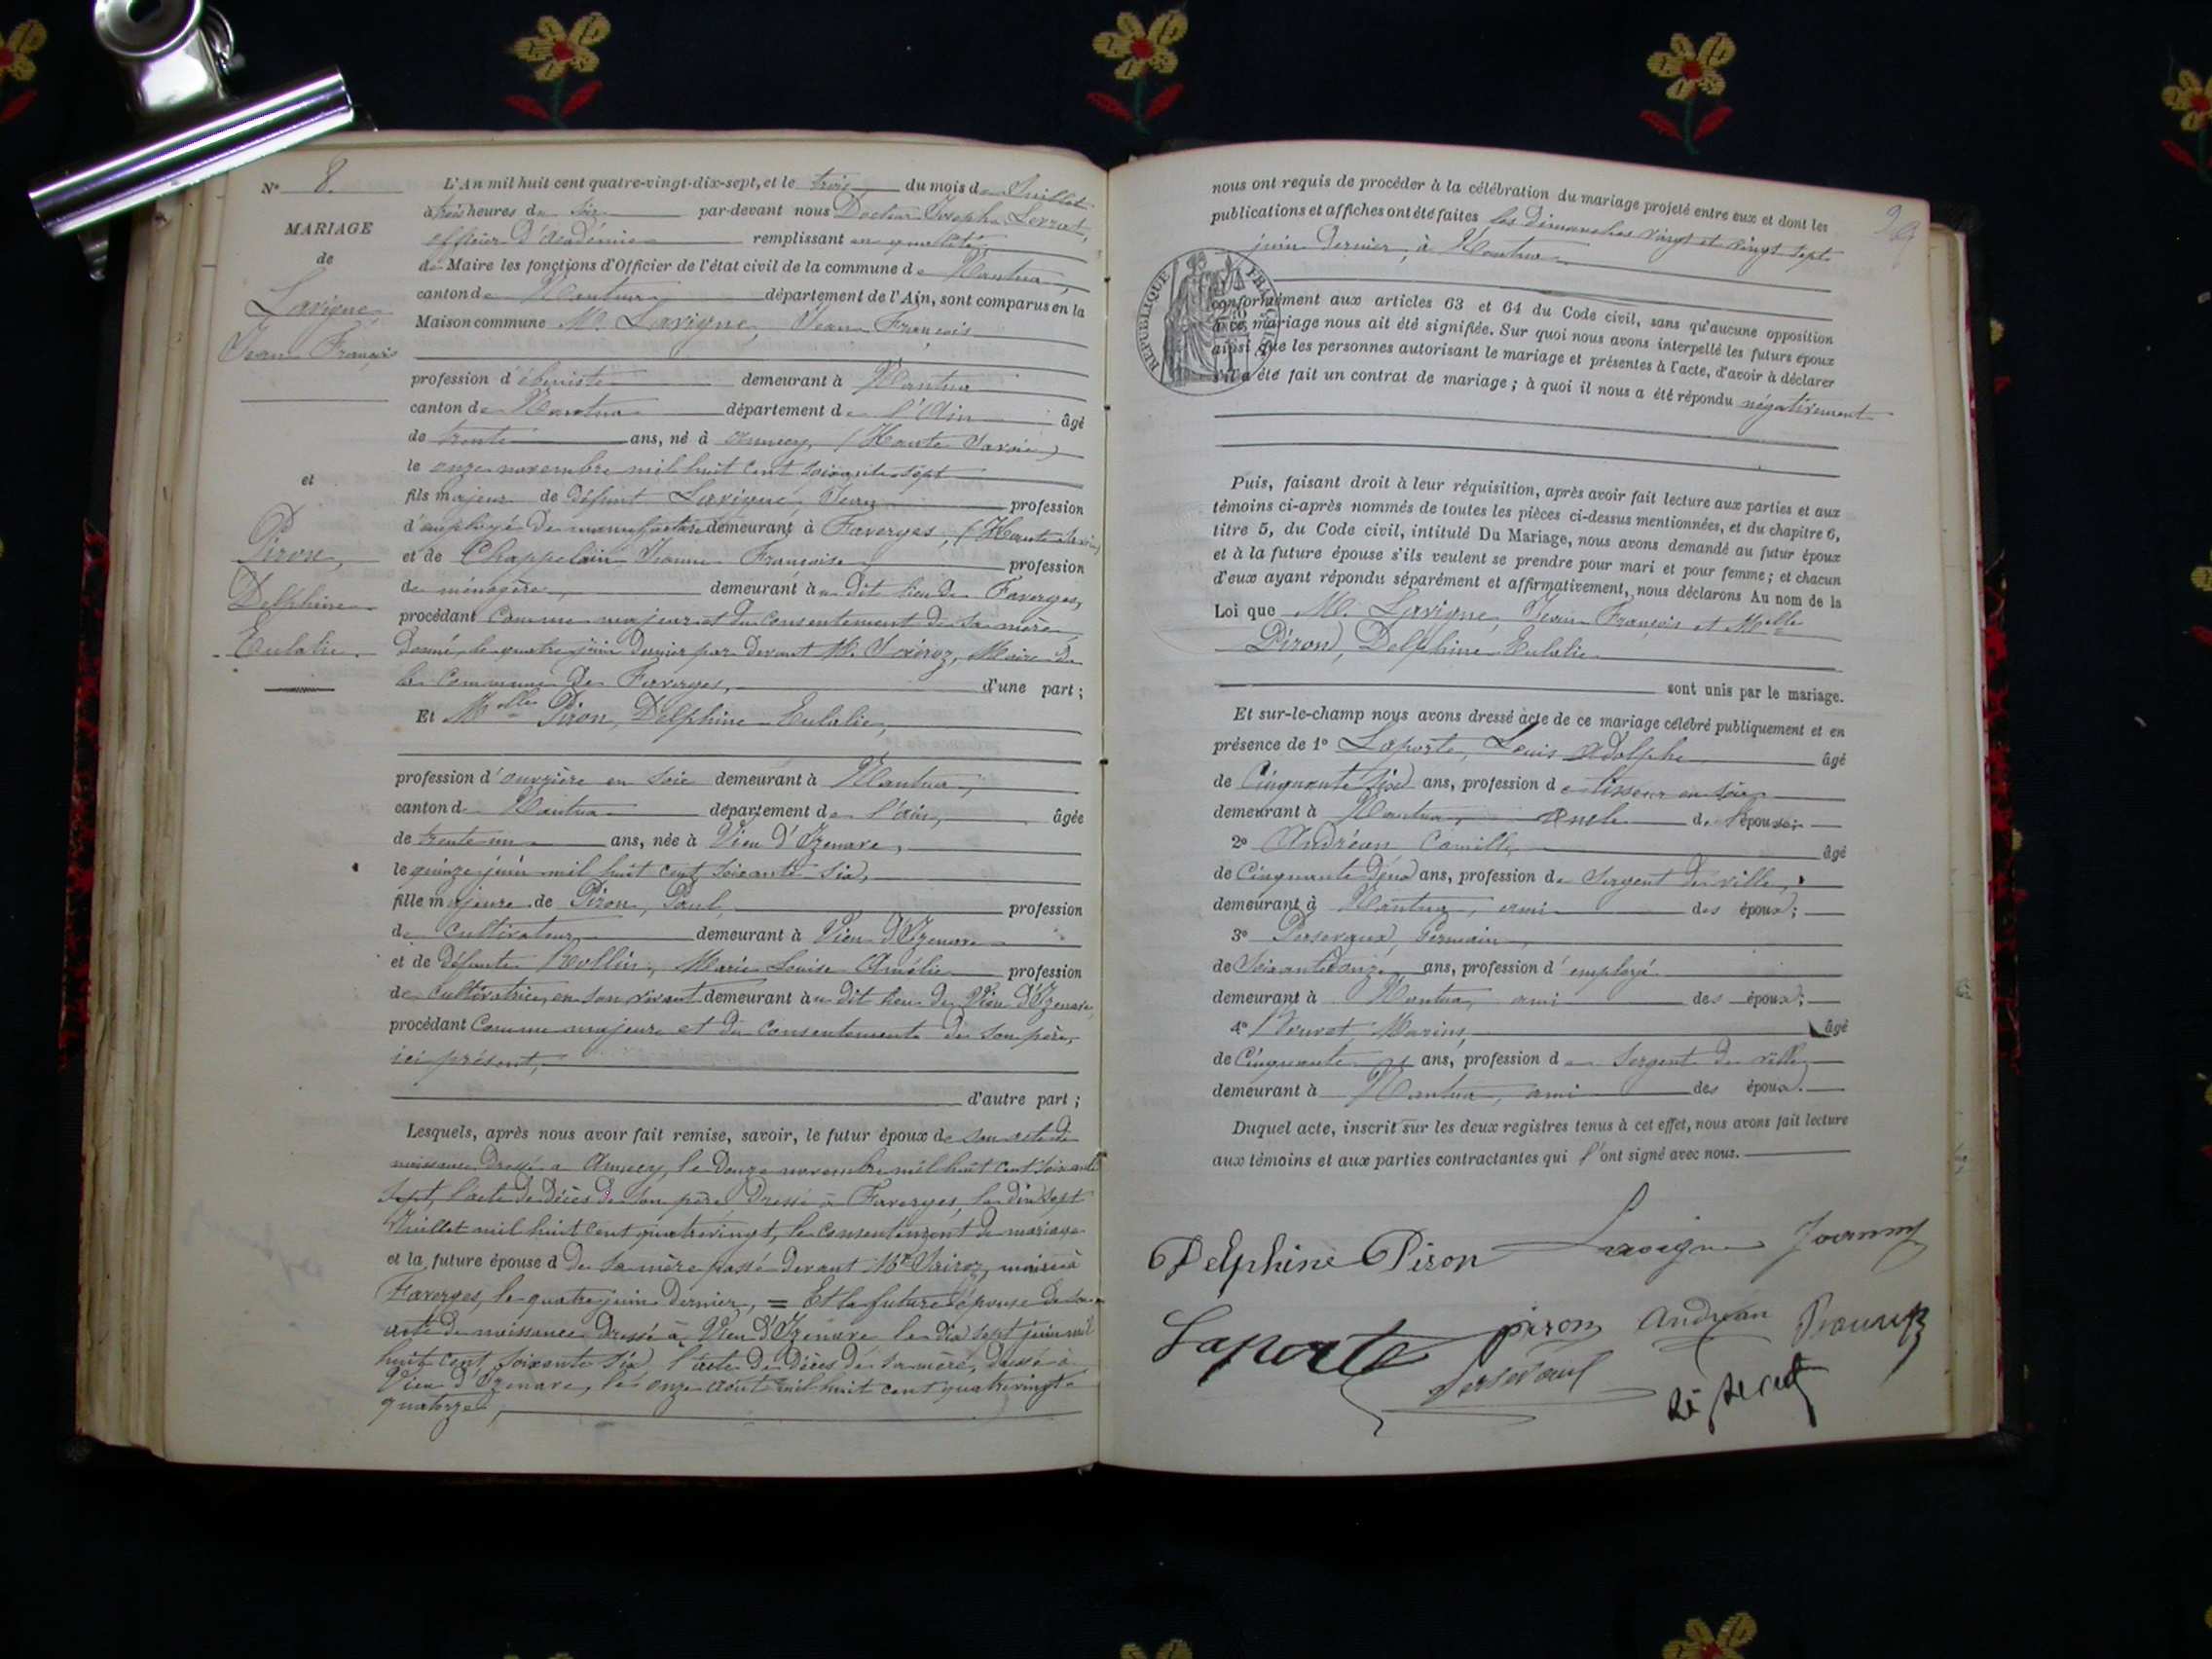 N° 8.
MARIAGE
de
Lavigne,
Jean François
et
Piron,
Delphine
Eulalie.
L'An mil huit cent quatre-vingt-dix-sept, et le trois du mois de Juillet
à trois heures du soir par-devant nous Docteur Joseph
officier d'académie remplissant en qualité
de Maire les fonctions d'Officier de l'état civil de la commune de Nantua,
canton de Nantua département de l'Ain, sont comparus en la
Maison commune M. Lavigne, Jean François
profession d'ébéniste demeurant à Nantua
canton de Nantua département de l'Ain âgé
de trente ans, né à Annecy, (Haute Savoie)
le onze novembre mil huit cent soixante sept
fils majeur de défunt Lavigne, Jean profession
d'employé de manufacture demeurant à Faverges, (Haute Savoie)
et de Chappelain Jeanne Françoise profession
de ménagère, demeurant au dit lieu de Faverges,
procédant comme majeur et du consentement de sa mère
donné le quatre juin dernier par devant M. Maire de
la Commune de Faverges, d'une part;
Et Melle Piron, Delphine Eulalie,
profession d'ouvrière en soie demeurant à Nantua,
canton de Nantua département de l'Ain, âgée
de trente un ans, née à Vieu d'Izenave,
le quinze juin mil huit cent soixante six,
fille majeure de Piron, Paul, profession
de cultivateur demeurant à Vieu d'Izenave
et de défunte Rollin, Marie Louise Amélie profession
de cultivatrice, en son vivant demeurant au dit lieu de Vieu d'Izenave,
procédant comme majeure et du consentement de son père,
ici présent,
d'autre part;
Lesquels, après nous avoir fait remise, savoir, le futur époux de son acte de
naissance dressé à Annecy, le douze novembre mil huit cent soixante
sept, l'acte de décès de son père, dressé à Faverges, le dix sept
Juillet mil huit cent quatrevingt, le consentement de mariage
et la future épouse d de sa mère passé devant Mr maire à
Faverges, le quatre juin dernier, = Et la future épouse de son
acte de naissance dressé à Vieu d'Izenave le dix sept juin mil
huit cent soixante six, l'acte de décès de sa mère, dressé à
Vieu d'Izenave, le onze août mil huit cent quatrevingt
quatorze,
nous ont requis de procéder à la célébration du mariage projeté entre eux et dont les
publications et affiches ont été faites les dimanches vingt et vingt sept
juin dernier, à Nantua
RÉPUBLIQUE FRANÇAISE
conformément aux articles 63 et 64 du Code civil, sans qu'aucune opposition
à ce mariage nous ait été signifiée. Sur quoi nous avons interpellé les futurs époux
ainsi que les personnes autorisant le mariage et présentes à l'acte, d'avoir à déclarer
s'il a été fait un contrat de mariage; à quoi il nous a été répondu négativement
Puis, faisant droit à leur réquisition, après avoir fait lecture aux parties et aux
témoins ci-après nommés de toutes les pièces ci-dessus mentionnées, et du chapitre 6,
titre 5, du Code civil, intitulé Du Mariage, nous avons demandé au futur époux
et à la future épouse s'ils veulent se prendre pour mari et pour femme; et chacun
d'eux ayant répondu séparément et affirmativement, nous déclarons Au nom de la
Loi que M. Lavigne, Jean François et Melle
Piron, Delphine Eulalie
sont unis par le mariage.
Et sur-le-champ nous avons dressé acte de ce mariage célébré publiquement et en
présence de 1° Laporte, Louis Adolphe âgé
de Cinquante six ans, profession de tisseur en soie
demeurant à Nantua, oncle de l'épouse;
2° Andréan Camille, âgé
de Cinquante deux ans, profession de Sergent de ville,
demeurant à Nantua, ami des époux;
3° Persevaux, Germain,
de Soixante douze ans, profession d'employé
demeurant à Nantua, ami des époux;
4° Marius, âgé
de Cinquante ans, profession de Sergent de ville,
demeurant à Nantua, ami des époux.
Duquel acte, inscrit sur les deux registres tenus à cet effet, nous avons fait lecture
aux témoins et aux parties contractantes qui l'ont signé avec nous.
Delphine Piron Lavigne
Laporte piron Andréan